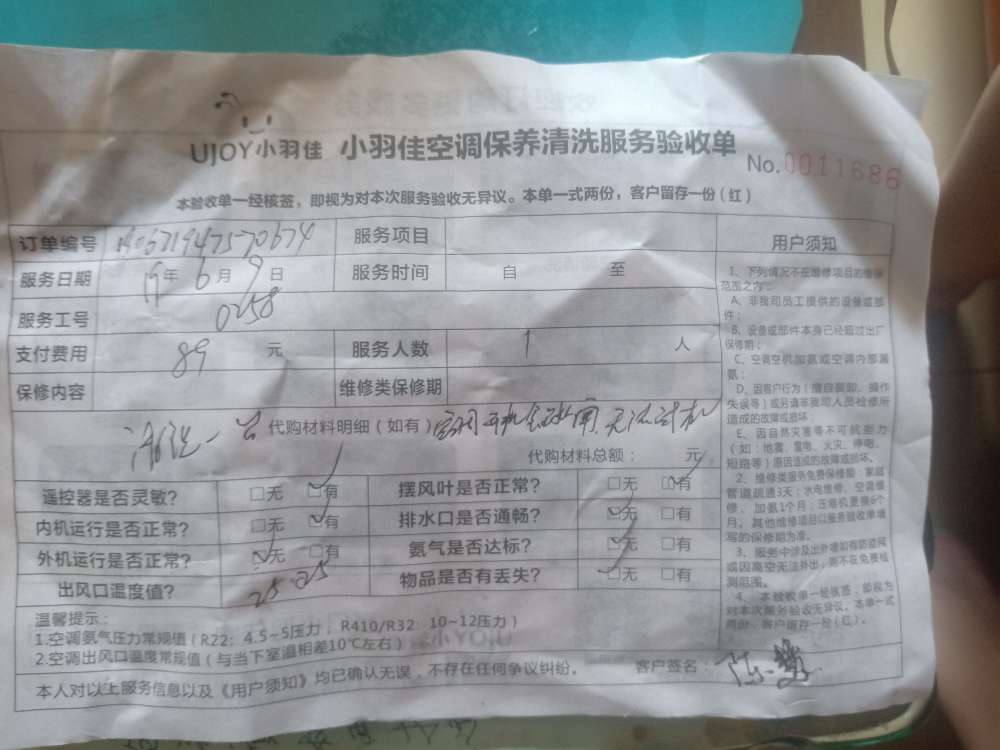 UJOY小羽佳 小羽佳空调保养清洗服务验收单
No.0011686
本验收单一经核签，即视为对本次服务验收无异议。本单一式两份，客户留存一份(红)
订单编号 服务项目 用户须知
服务日期 19年6月9日 服务时间 自 至
服务工号 0258
支付费用 89 元 服务人数 1 人
保修内容 维修类保修期
清洗一台 代购材料明细(如有) 空调
代购材料总额： 元
遥控器是否灵敏? □无 ☑有 摆风叶是否正常? □无 ☑有
内机运行是否正常? □无 ☑有 排水口是否通畅? ☑无 □有
外机运行是否正常? ☑无 □有 氨气是否达标? ☑无 □有
出风口温度值? 25 25 物品是否有丢失? ☑无 □有
温馨提示：
1.空调氨气压力常规值(R22：4.5~5压力，R410/R32：10~12压力)
2.空调出风口温度常规值(与当下室温相差10℃左右)
本人对以上服务信息以及《用户须知》均已确认无误，不存在任何争议纠纷。 客户签名：
1、下列情况不在维修项目的维保
范围之内：
A、非我司员工提供的设备或部
件；
B、设备或部件本身已经超过出厂
保修期；
C、空调空机加氨或空调内部漏
氨；
D、因客户行为(擅自拆卸、操作
失误等)或另请非我司人员检修所
造成的故障或损坏；
E、因自然灾害等不可抗能力
(如：地震、雷电、火灾、停电、
短路等)原因造成的故障或损坏。
2、维修类服务免费保修期：家庭
管道疏通3天；水电维修、空调维
修、加氨1个月；压缩机更换6个
月。其他维修项目以服务验收单填
写的保修期为准。
3、服务中涉及出外墙如有防盗网
或因高空无法外出，则不在免费检
测范围。
4、本验收单一经核签，即视为
对本次服务验收无异议。本单一式
两份，客户留存一份(红)。